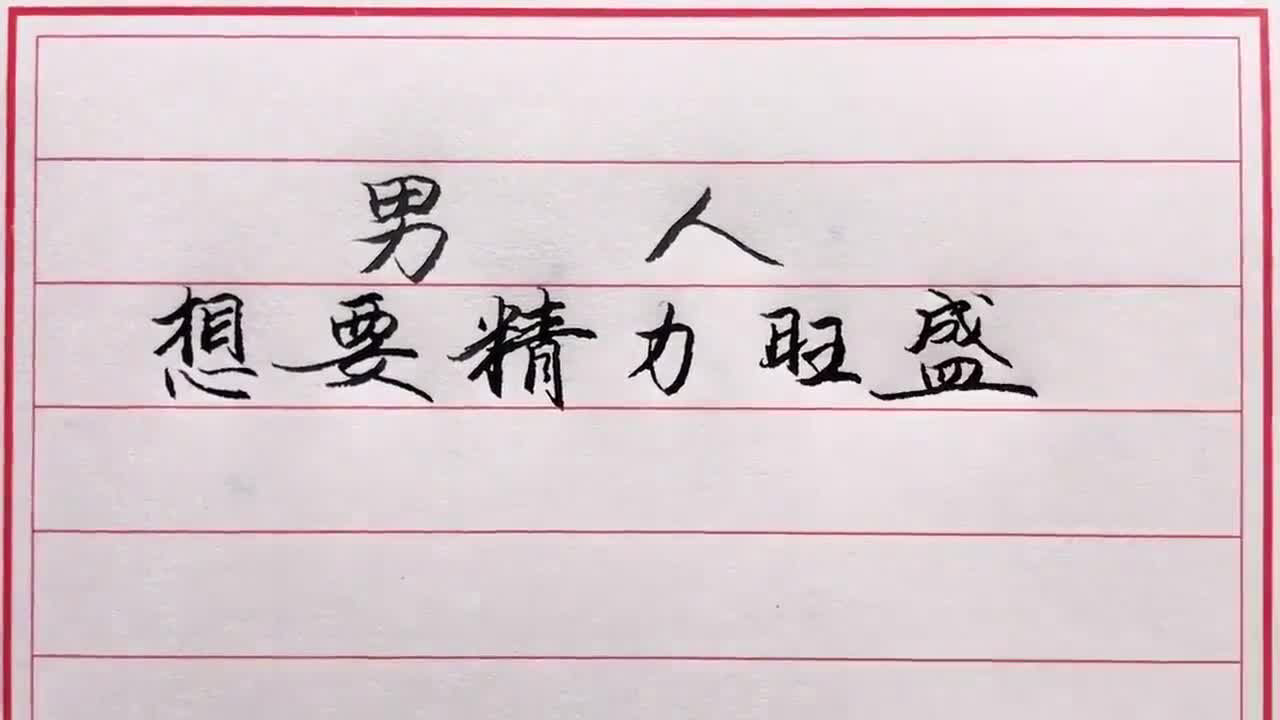 男人
想要精力旺盛